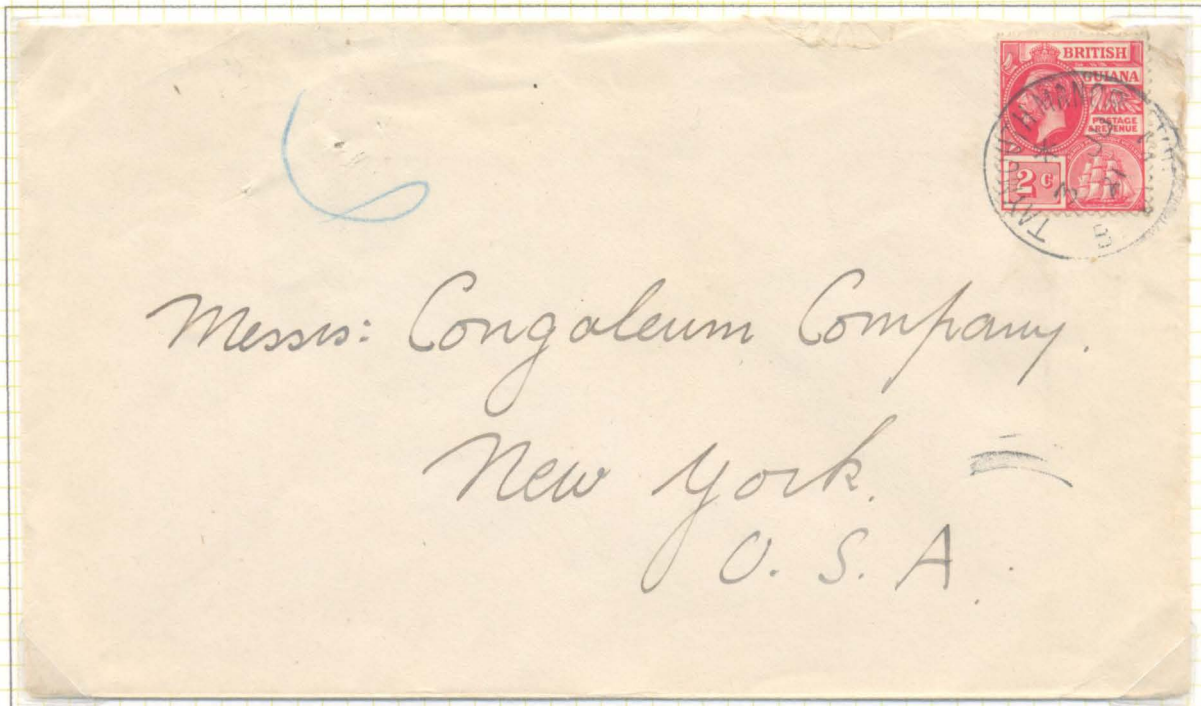 BRITISH
GUIANA
POSTAGE
& REVENUE
2 C
Messrs: Congoleum Company.
New York.
U. S. A.